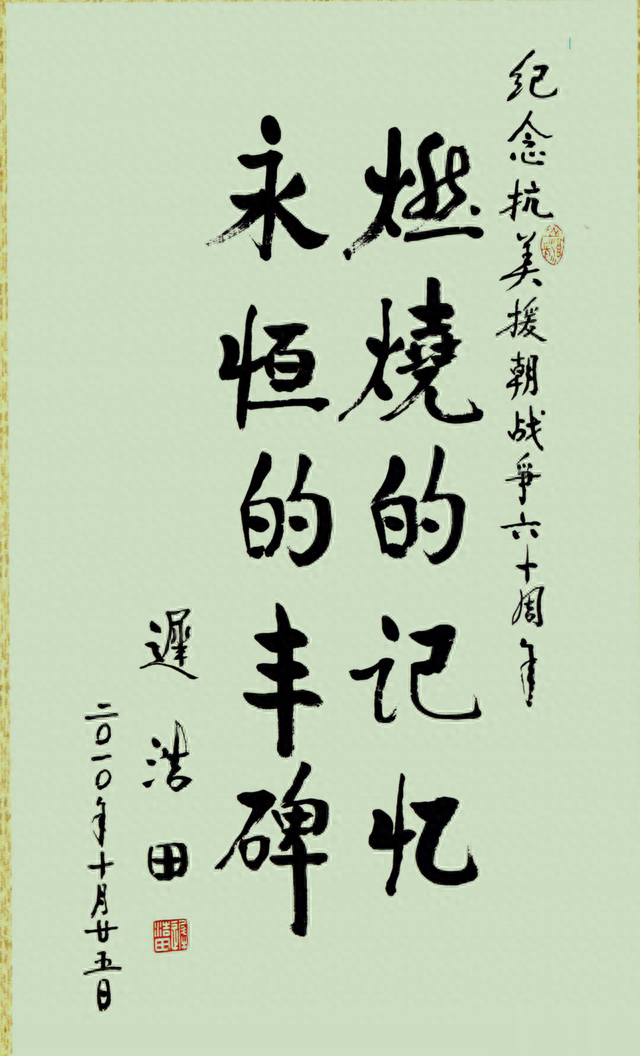 纪念抗美援朝战争六十周年
燃燒的记忆
永恒的丰碑
遲浩田
二〇一〇年十月廿五日